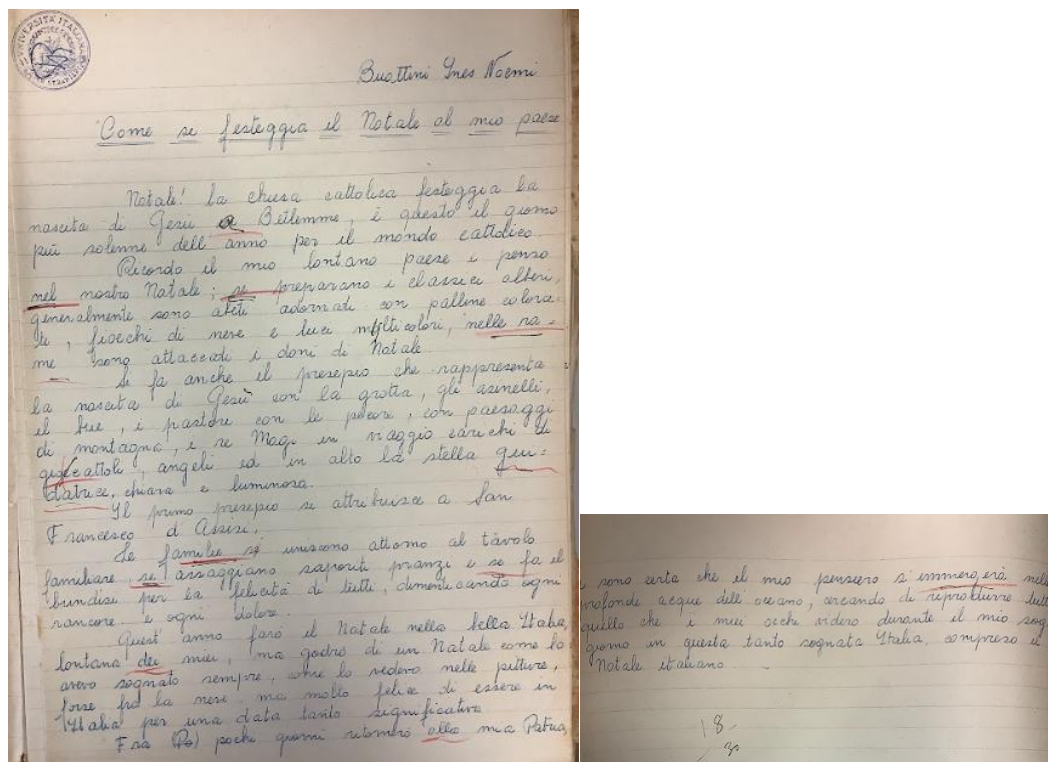 UNIVERSITÀ ITALIANA
Buattini Ines Noemi
Come se festeggia il Natale al mio paese
Natale! la chiesa cattolica festeggia la
nascita di Gesù a Betlemme, è questo il giorno
più solenne dell'anno per il mondo cattolico.
Ricordo il mio lontano paese e penso
nel nostro Natale; se preparano i classici alberi,
generalmente sono abeti adornati con palline colora-
te, fiocchi di neve e luci multicolori, nelle ra-
me sono attaccati i doni di Natale.
Si fa anche il presepio che rappresenta
la nascita di Gesù con la grotta, gli asinelli,
il bue, i pastore con le pecore, con paesaggi
di montagna, i re Magi in viaggio carichi di
giocattoli, angeli ed in alto la stella gui-
datrice, chiara e luminosa.
Il primo presepio se attribuisce a San
Francesco d'Assisi.
Le familie si uniscono attorno al tavolo
familiare, se assaggiano saporiti pranzi e se fa il
brindisi per la felicità di tutti, dimenticando ogni
rancore e ogni dolore.
Quest'anno farò il Natale nella bella Italia,
lontana dei miei, ma godrò di un Natale come lo
avevo sognato sempre, come lo vedevo nelle pitture,
forse fra la neve, ma molto felice di essere in
Italia per una data tanto significativa
Fra (Po) pochi giorni ritornerò alla mia Patria,
sono certa che il mio pensiero s'immergerà nelle
profonde acque dell'oceano, cercando di riprodurre tutto
quello che i miei occhi videro durante il mio sog-
giorno in questa tanto sognata Italia, compreso il
Natale italiano.
18
30